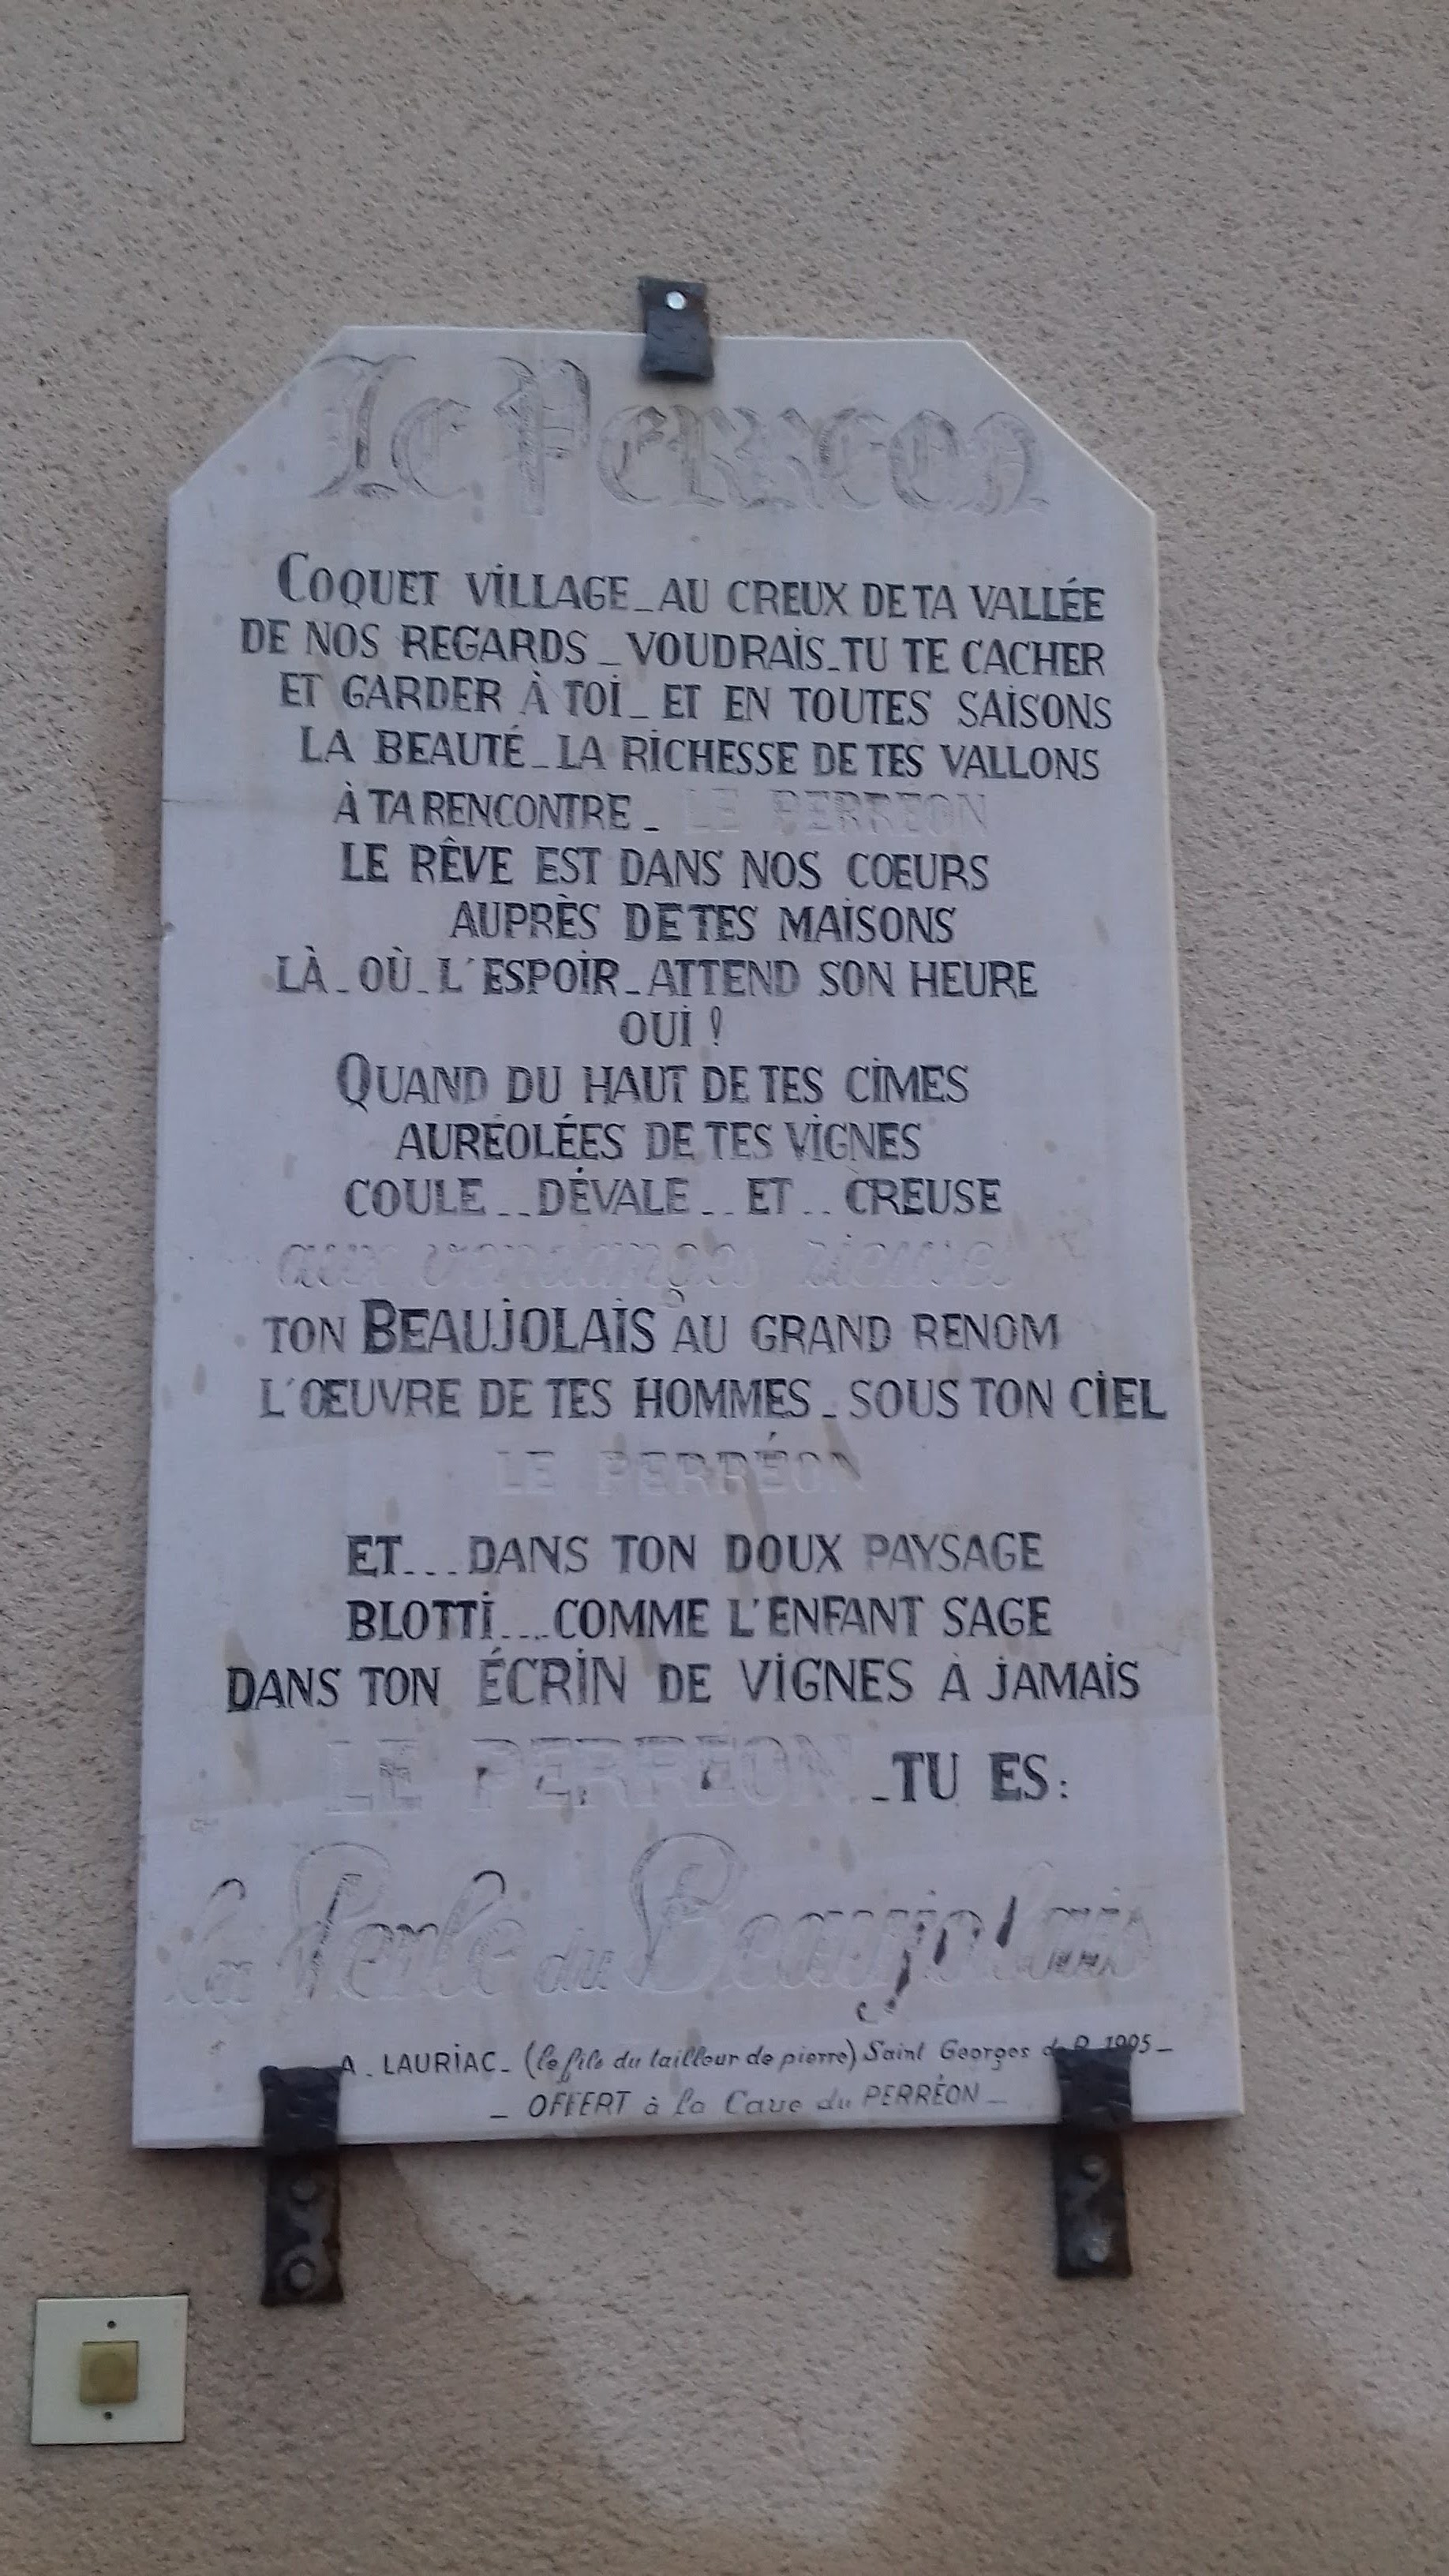 Le Perréon
COQUET VILLAGE_AU CREUX DE TA VALLÉE
DE NOS REGARDS_VOUDRAIS_TU TE CACHER
ET GARDER À TOI_ET EN TOUTES SAISONS
LA BEAUTÉ_LA RICHESSE DE TES VALLONS
À TA RENCONTRE_LE PERRÉON
LE RÊVE EST DANS NOS CŒURS
AUPRÈS DE TES MAISONS
LÀ_OÙ_L'ESPOIR_ATTEND SON HEURE
OUI !
QUAND DU HAUT DE TES CIMES
AURÉOLÉES DE TES VIGNES
COULE__DÉVALE__ET__CREUSE
aux vendanges
TON BEAUJOLAIS AU GRAND RENOM
L'ŒUVRE DE TES HOMMES_SOUS TON CIEL
LE PERRÉON
ET...DANS TON DOUX PAYSAGE
BLOTTI...COMME L'ENFANT SAGE
DANS TON ÉCRIN DE VIGNES À JAMAIS
LE PERRÉON_TU ES:
la Perle du Beaujolais
A. LAURIAC_(le fils du tailleur de pierre) Saint Georges de R. 1995_
_OFFERT à la Cave du PERRÉON_